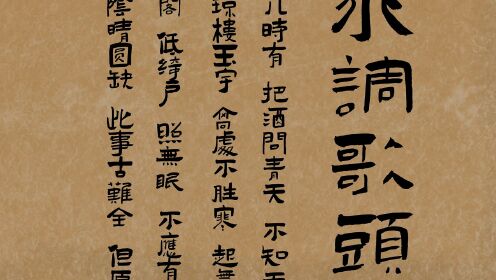 水調歌頭
几時有 把酒問青天 不知天
琼樓玉宇 高處不胜寒 起舞
閣 低綺戶 照無眠 不應有
陰晴圓缺 此事古難全 但